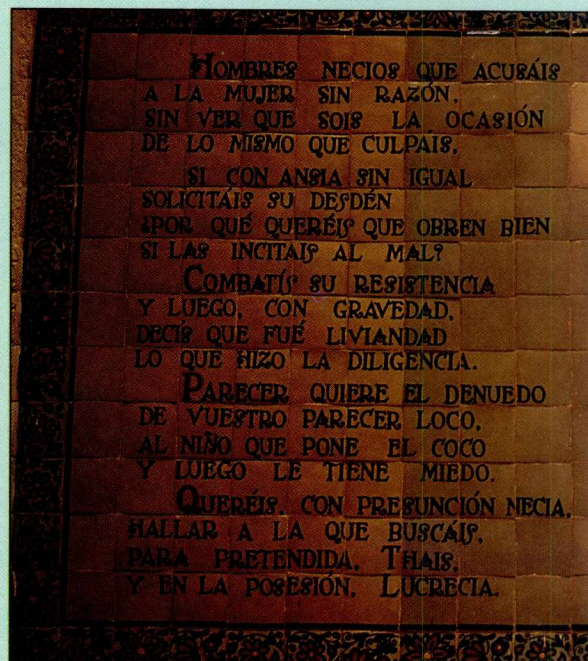 HOMBRES NECIOS QUE ACUSÁIS
A LA MUJER SIN RAZÓN,
SIN VER QUE SOIS LA OCASIÓN
DE LO MISMO QUE CULPAIS,
SI CON ANSIA SIN IGUAL
SOLICITÁIS SU DESDÉN
¿POR QUÉ QUERÉIS QUE OBREN BIEN
SI LAS INCITAIS AL MAL?
COMBATÍS SU RESISTENCIA
Y LUEGO, CON GRAVEDAD,
DECÍS QUE FUÉ LIVIANDAD
LO QUE HIZO LA DILIGENCIA.
PARECER QUIERE EL DENUEDO
DE VUESTRO PARECER LOCO,
AL NIÑO QUE PONE EL COCO
Y LUEGO LE TIENE MIEDO.
QUERÉIS, CON PRESUNCIÓN NECIA,
HALLAR A LA QUE BUSCÁIS,
PARA PRETENDIDA, THAIS,
Y EN LA POSESIÓN, LUCRECIA.